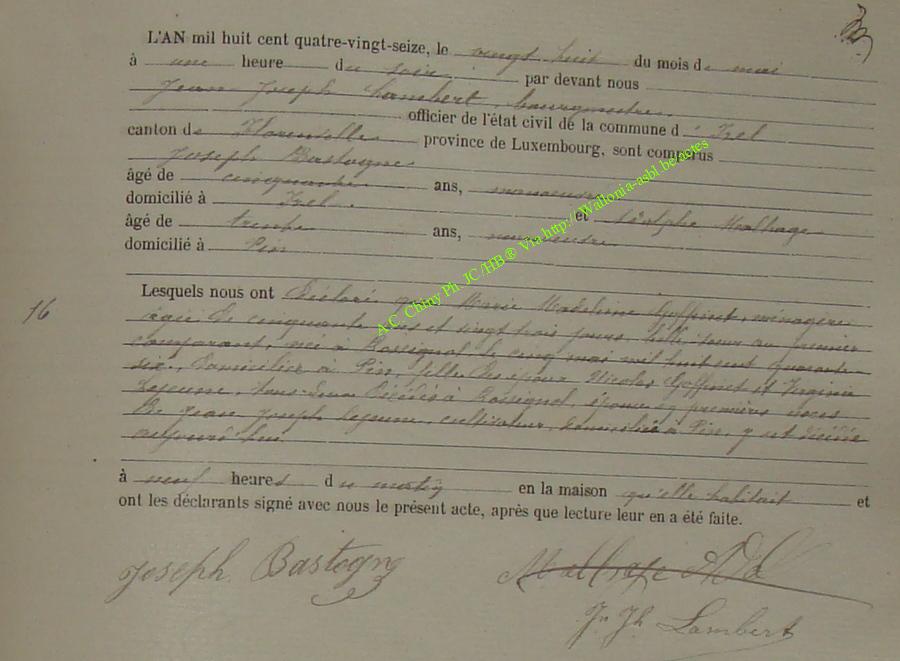 L'AN mil huit cent quatre-vingt-seize, le vingt huit du mois de mai
à une heure du soir par devant nous
Jean Joseph Lambert, bourgmestre
officier de l'état civil de la commune d'Izel
canton de Florenville province de Luxembourg, sont comparus
Joseph Bastogne
âgé de cinquante ans, manoeuvre
domicilié à Izel. et Adolphe Malhage
âgé de trente ans, manoeuvre
domicilié à Pin
16
Lesquels nous ont déclaré que Marie Madeleine Goffinet, ménagère
âgée de cinquante ans et vingt trois jours, belle soeur au premier
comparant, née à Rossignol le cinq mai mil huit cent quarante
six, domiciliée à Pin, fille des époux Nicolas Goffinet et Virginie
Lejeune, tous deux décédés à Rossignol, épouse en premières noces
de Jean Joseph Lejeune, cultivateur, domicilié à Pin, y est décédée
aujourd'hui
à neuf heures du matin en la maison qu'elle habitait et
ont les déclarants signé avec nous le présent acte, après que lecture leur en a été faite.
Joseph Bastogne
Jn Jh Lambert
A.C. Chiny Ph JC/HB ® Via http://Wallonia-asbl.be/actes